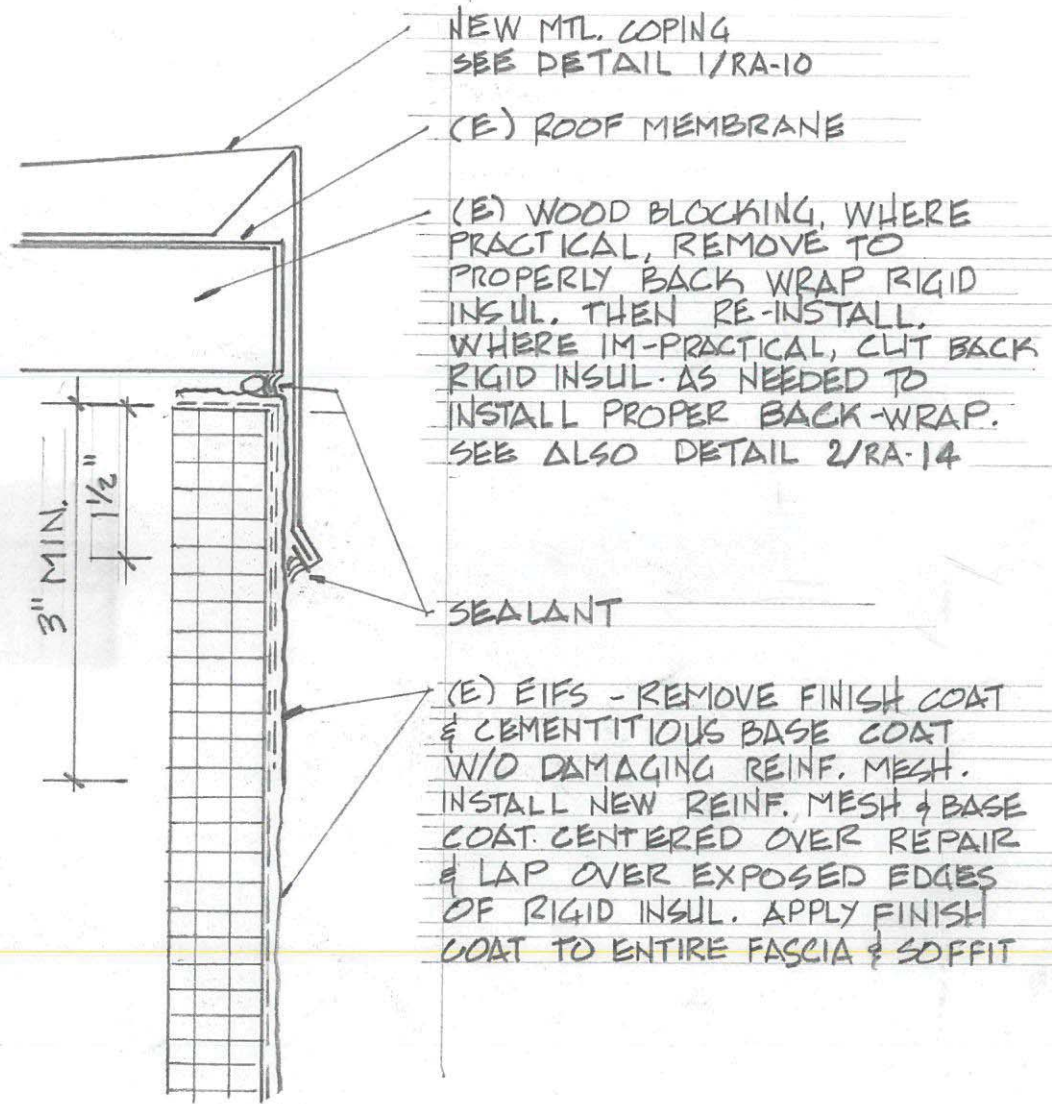 NEW MTL. COPING
SEE DETAIL 1/RA-10
(E) ROOF MEMBRANE
(E) WOOD BLOCKING, WHERE
PRACTICAL, REMOVE TO
PROPERLY BACK WRAP RIGID
INSUL. THEN RE-INSTALL.
WHERE IM-PRACTICAL, CUT BACK
RIGID INSUL. AS NEEDED TO
INSTALL PROPER BACK-WRAP.
SEE ALSO DETAIL 2/RA-14
3" MIN.
1 1/2"
SEALANT
(E) EIFS - REMOVE FINISH COAT
& CEMENTITIOUS BASE COAT
W/O DAMAGING REINF. MESH.
INSTALL NEW REINF. MESH & BASE
COAT. CENTERED OVER REPAIR
& LAP OVER EXPOSED EDGES
OF RIGID INSUL. APPLY FINISH
COAT TO ENTIRE FASCIA & SOFFIT